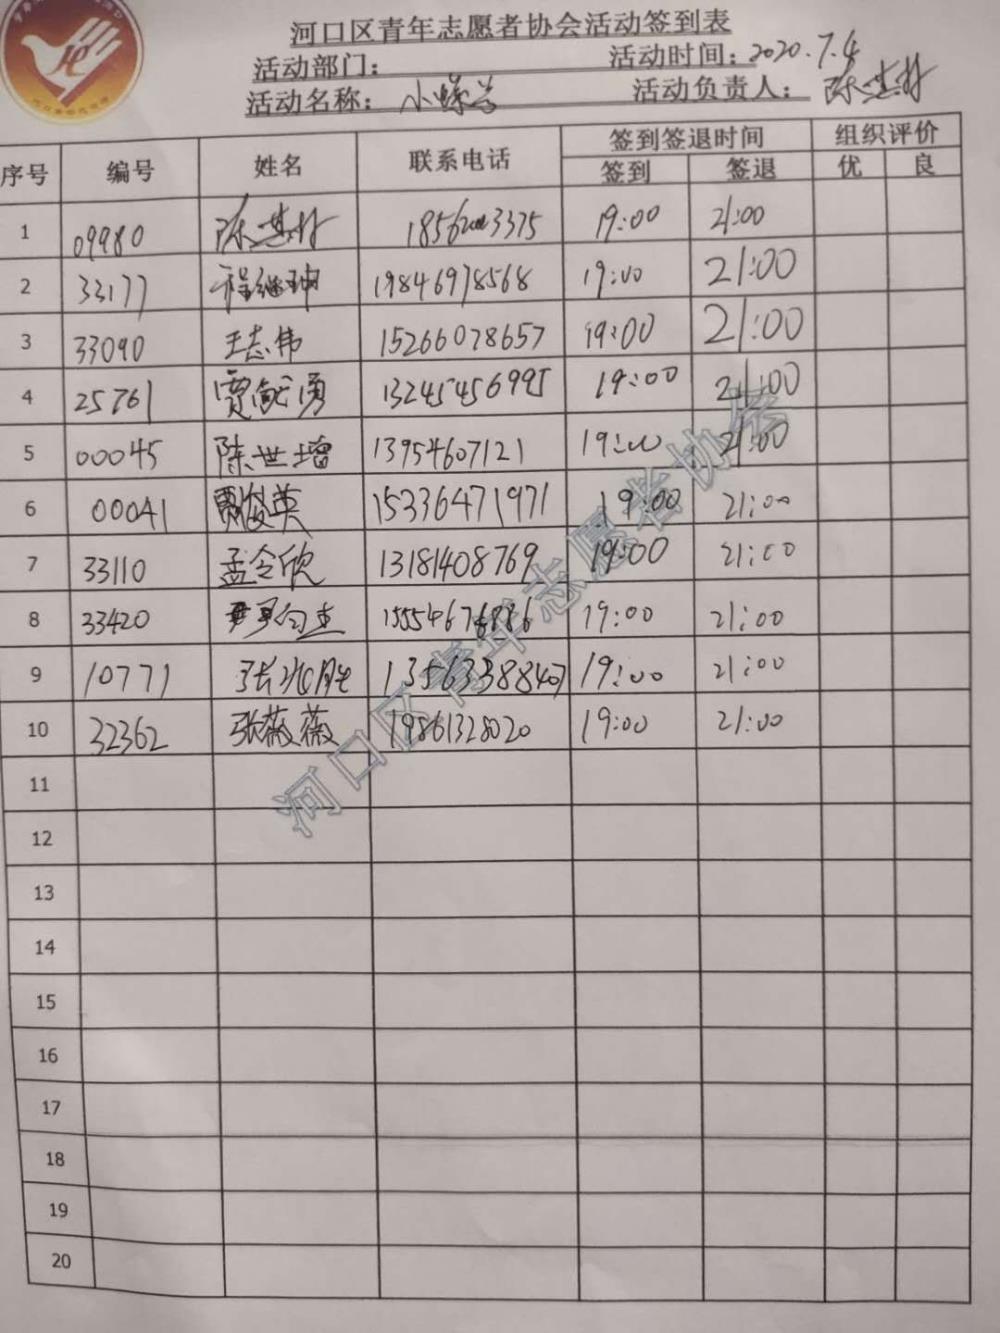 河口区青年志愿者协会活动签到表
活动部门： 活动时间：2020.7.4
活动名称： 小 活动负责人： 陈
序号 编号 姓名 联系电话 签到签退时间 组织评价
签到 签退 优 良
1 09980 陈 19:00 21:00
2 33177 程继珅 19846978568 19:00 21:00
3 33090 王志伟 15266078657 19:00 21:00
4 25761 贾 勇 13245456995 19:00 21:00
5 00045 陈世增 13954607121 19:00 21:00
6 00041 英 15336471971 19:00 21:00
7 33110 孟令欣 13181408769 19:00 21:00
8 33420 19:00 21:00
9 10771 张兆胜 19:00 21:00
10 32362 张薇薇 19861328020 19:00 21:00
11
12
13
14
15
16
17
18
19
20
河口区青年志愿者协会